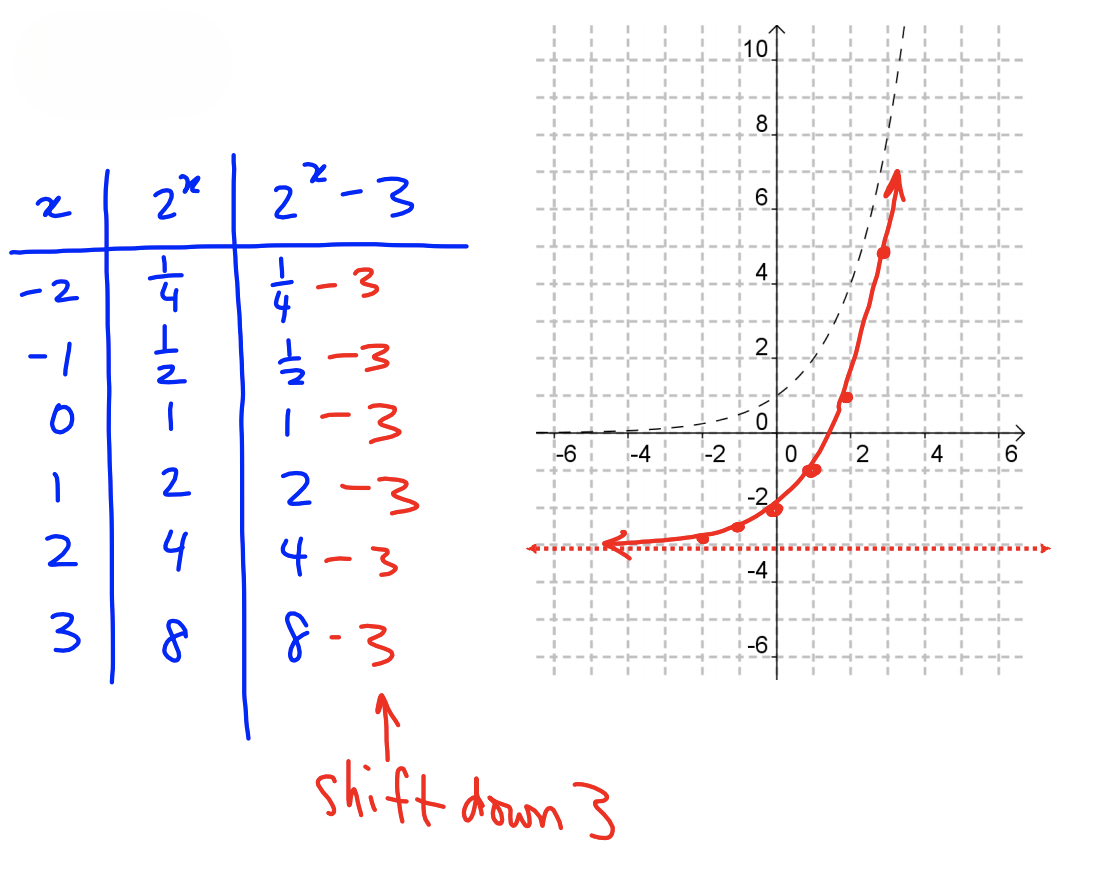 x 2^x 2^x - 3
-2 1/4 1/4 - 3
-1 1/2 1/2 - 3
0 1 1 - 3
1 2 2 - 3
2 4 4 - 3
3 8 8 - 3
shift down 3
10
8
6
4
2
0
-6 -4 -2 0 2 4 6
-2
-4
-6